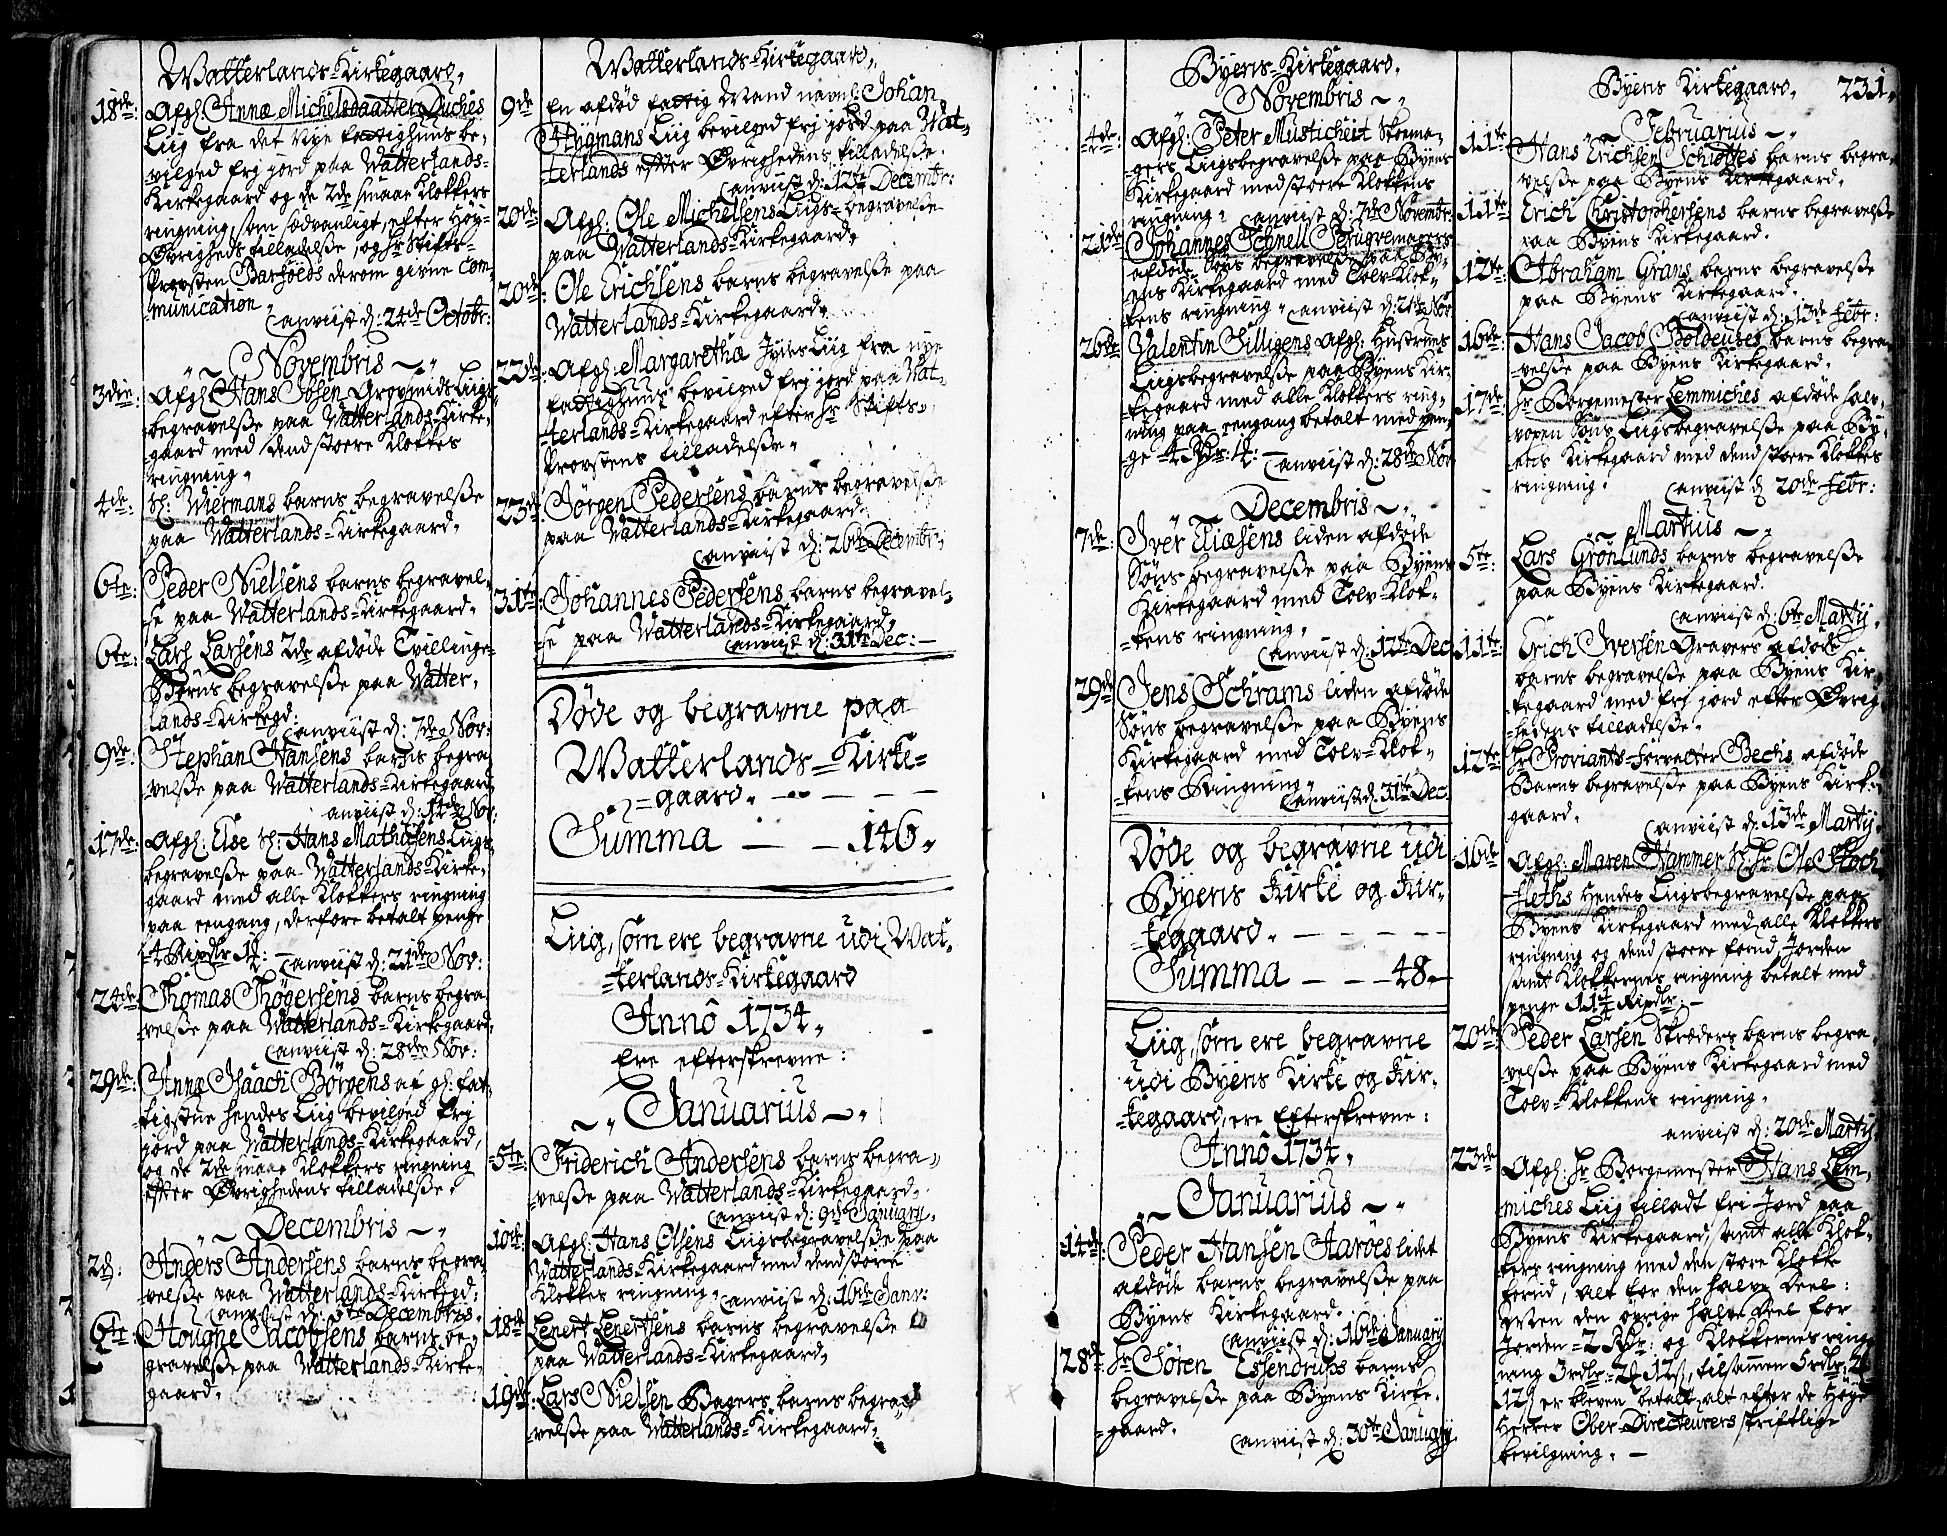 Watterlands-Kirkegaard,
18de: Afgl: Annæ Michelsdaatter Duches
Liig fra det Nye fattighuus be-
vilged frj jord paa Watterlands-
Kirkegaard og de 2de smaae Klokkers
ringning, som sædvanligt, efter Høy-
Øvrigheds tilladelse, og hr Stifts-
Provsten Barføeds derom givne Com-
munication
anviist d: 24de Octobr:
Novembris
3die Afgl: Hans Ibsen Grovsmids Liigs
begravelße paa Watterlands-Kirke-
gaard med dend stoere Klokkes
ringning.
4de: Sl: Wiermans barns begravelße
paa Watterlands-Kirkegaard.
6te: Peder Nielsens barns begravel-
se paa Watterlands-Kirkegaard.
6te: Lars Larsens 2de afdøde Tvillinge-
Børns begravelße paa Watter-
lands-Kirkegd:
anviist d: 7de Nov:
9de: Stephan Hansens barns begra
velße paa Watterlands-Kirkegaard
anviist d: 14de Nov:
17de: Afgl: Else Sl: Hans Mathiesens Liigs
begravelße paa Watterlands-Kirke-
gaard med alle Klokkers ringning
paa eengang, derfore betalt penge
4 Rixdlr 1
anviist d: 21de Nov:
24de Thomas Thögersens barns begra
velße paa Watterlands-Kirkegaard,
anviist d: 28de Nov:
29de: Annæ Isaach Börgens af gl: fat-
tigstue hendes Liig bevilged frj
jord paa Watterlands-Kirkegaard,
og de 2de smaae Klokkers ringning
efter Øvrighedens tilladelße.
Decembris
2d: Anders Andersens barns begra-
velße paa Watterlands-Kirkegd:
anviist d: 5te Decembris.
6te: Hougne Jacobsens barns be-
gravelße paa Watterlands-Kirke-
gaard.
Watterlands-Kirkegaard,
9de En afdød fattig Mand navnl: Johan
Hÿgmans Liig bevilged frj jord paa Wat-
terlands efter Øvrighedens tilladelße.
anviist d: 12te Decembr:
20de Afgl: Ole Michelsens Liigs-begravelße
paa Watterlands-Kirkegaard,
20de: Ole Erichsens barns begravelße paa
Watterlands-Kirkegaard.
22de: Afgl: Margaretha Jyde Liig fra nye
fattighuus bevilged frj jord paa Wat-
terlands-Kirkegaard efter hr Stifts-
Provstens tilladelße.
23de: Jörgen Pedersens barns begravelße
paa Watterlands-Kirkegaard.
anviist d: 26de Decembr:
31te: Johannes Pedersens barns begravel-
se paa Watterlands-Kirkegaard,
anviist d: 31te Dec:
Døde og begravne paa
Watterlands-Kirke-
gaard.
Summa 146.
Liig, som ere begravne udi Wat-
terlands-Kirkegaard
Annô 1734.
Ere efterskrevne:
Januarius
5te: Friderich Andersens barns begra-
velße paa Watterlands-Kirkegaard.
anviist d: 9de Januarÿ.
10de: Afgl: Hans Olsens Liigsbegravelße paa
Watterlands-Kirkegaard med dend stoere
Klokkes ringning.
anviist d: 16de Janv:
18de Lenert Lenertsens barns begravelße
paa Watterlands-Kirkegaard,
19de: Lars Nielsen Bagers barns begra-
velße paa Watterlands-Kirkegaard.
Byens-Kirkegaard.
Novembris
4de: Afgl: Peter Musticheit Skoma-
gers Liigsbegravelße paa Byens
Kirkegaard med stoere Klokkens
ringning. anviist d: 7de Novembr:
21de: Johannes Schnell Perugvemagers
afdøde Søns begravelße paa By-
ens Kirkegaard med Tolv-Klok-
kens ringning. anviist d: 21de Nov
26de Valentin Silligens Afgl: Hustrues
Liigsbegravelße paa Byens Kir-
kegaard med alle Klokkers ring-
ning paa eengang betalt med pen-
ge 4 Rdr: 4:
anviist d: 28de Nov
Decembris
7de: Jver Eliæsens liden afdøde
Søns begravelße paa Byens
Kirkegaard med Tolv-Klok-
kens ringning,
anviist d: 12te Dec
29de Jens Schrams liden afdøde
Søns begravelße paa Byens
Kirkegaard med Tolv-Klok-
kens Ringning
anviist d: 31te Dec.
Døde og begravne udi
Byens Kirke og Kir-
kegaard.
Summa 48.
Liig, som ere begravne
udi Byens Kirke og Kir-
kegaard, ere Efterskrevne:
Annô 1734.
Januarius
14de: Peder Hansen Aarøes lidet
afdøde barns begravelße paa
Byens Kirkegaard.
anviist d: 16de Januarÿ
28de hr Søren Essendrups barns
begravelße paa Byens Kirke-
gaard.
anviist d: 30te Januarÿ
Byens Kirkegaard. 231.
Februarius
11te Hans Erichsen Schiøttes barns begra-
velße paa Byens Kirkegaard.
11te: Erich Christophersens barns begravelße
paa Byens Kirkegaard.
12te: Abraham Grans barns begravelße
paa Byens Kirkegaard.
anviist d: 13de Febr:
16de: Hans Jacob Boldeuses barns begra-
velße paa Byens Kirkegaard.
17de hr Borgemester Lemmiches afdøde halv
voxen Søns Liigsbegravelße paa By-
ens Kirkegaard med dend stoere Klokkes
ringning.
anviist d: 20de Febr:
Martius
5te: Lars Grönlunds barns begravelße
paa Byens Kirkegaard.
anviist d: 6te Martÿ.
11te: Erich Iversen Gravers afdøde
barns begravelße paa Byens Kir-
kegaard med frj jord efter Øvrig-
hedens tilladelße.
12te: hr Proviants-Forvalter Bechs afdøde
Barns begravelße paa Byens Kirke-
gaard.
anviist d: 13de Martÿ.
16de Afgl: Maren Hammer Sl: hr Ole Stoch-
fleths hendes Liigsbegravelße paa
Byens Kirkegaard med alle Klokkers
ringning og dend stoere forud, Jorden
samt Klokkernes ringning betalt med
penge 11 Rixdlr:
20de Peder Larsen Skræders barns begra-
velße paa Byens Kirkegaard med
Tolv-Klokkens ringning.
anviist d: 20de Martÿ
23de Afgl: hr Borgemester Hans Lem-
miches Liig tilladt fri Jord paa
Byens Kirkegaard, samt alle Klok-
kers ringning med den store Klokke
forud, alt for den halve Deel:
Men den øvrige halve Deel for
Jorden 2 Rdr: og Klokkernes ring-
ning 3rdlr 2 12, tilsammen 5rdlr 2
12 er bleven betalt, alt efter de Høye
Herrer Ober-Directeurers skriftlige
bevilgning.